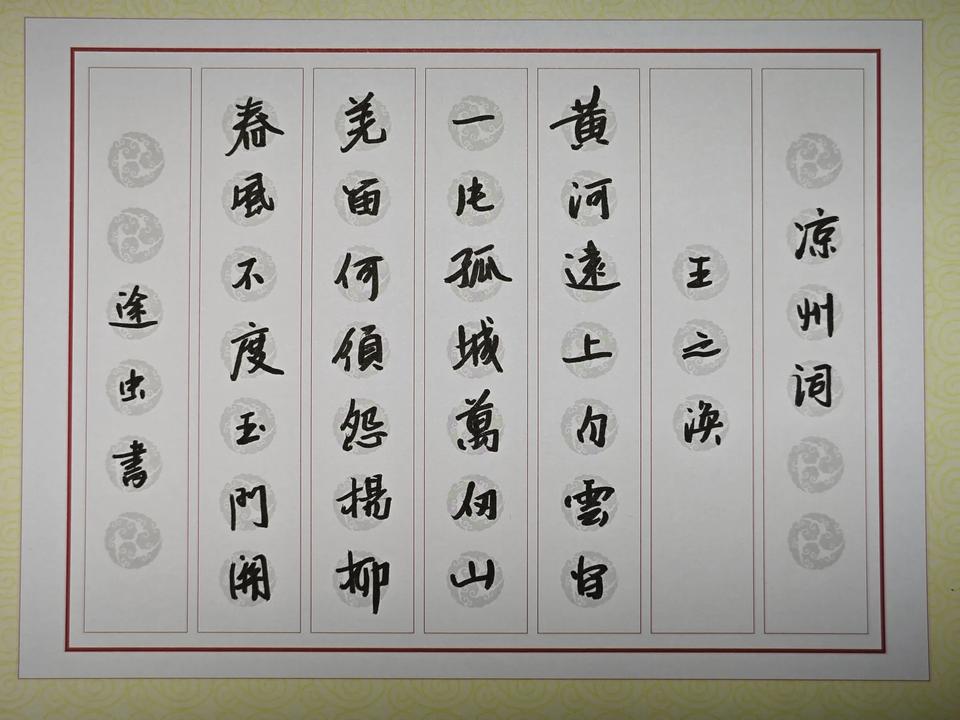 凉州词
王之涣
黄河遠上白雲間
一片孤城萬仞山
羌笛何須怨楊柳
春風不度玉門関
途虫書